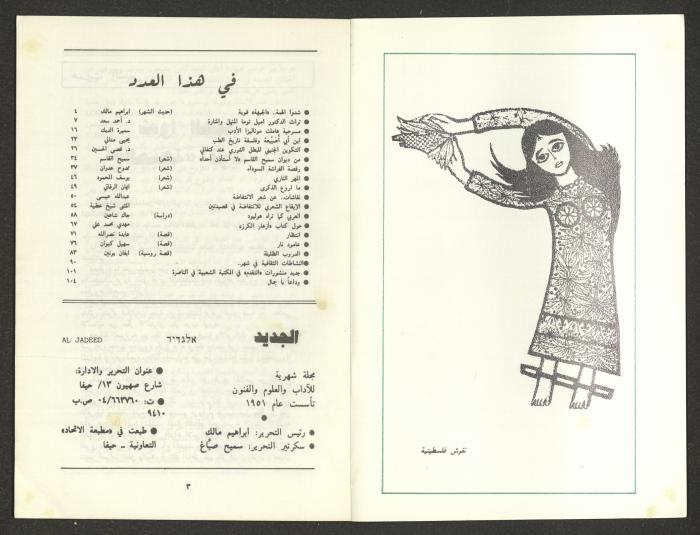 في هذا العدد
● شدوا الهمة.. «الجبهة» قوية (حديث الشهر) ابراهيم مالك ٤
● تراث الدكتور اميل توما المنهل والمنارة د. أحمد سعد ٧
● مسرحية هاملت موناليزا الأدب سميرة الديك ١٦
● ابن أبي أُصَيْبعة وفلسفة تاريخ الطب يحيى مناني ٢٣
● التكوين الجنيني للبطل الثوري عند كنفاني د. قصي الحسين ٢٦
● من ديوان سميح القاسم «لا أستأذن أحدا» (شعر) سميح القاسم ٣٤
● رقصة الفراشة السوداء (شعر) ممدوح عدوان ٣٧
● المهر الناري (شعر) يوسف المحمود ٤٦
● ما أروع الذكرى (شعر) ايمان الرفاتي ٤٩
● نقاشات.. عن شعر الانتفاضة عبدالله عيسى ٥٠
● الإيقاع الشعري للانتفاضة في قصيدتين المثنى شيخ عطية ٥٤
● العربي كما تراه هوليود (دراسة) جاك شاهين ٥٨
● حول كتاب «أزهار الكرز» مهدي محمد علي ٦٧
● انتظار (قصة) عابدة نصرالله ٧١
● عامود نار (قصة) سهيل كيوان ٧٦
● الدروب الظليلة (قصة روسية) ايفان بونين ٨٣
● النشاطات الثقافية في شهر. ٩٠
● جديد منشورات «التقدم» في المكتبة الشعبية في الناصرة ١٠١
● وداعاً يا جمال ١٠٤
الجديد אלגדיד AL JADEED
مجلة شهرية
للآداب والعلوم والفنون
تأسست عام ١٩٥١
●
● رئيس التحرير: ابراهيم مالك
● سكرتير التحرير: سميح صبّاغ
● عنوان التحرير والادارة:
شارع صهيون ١٣/ حيفا
● ت: ٠٤/٦٦٣٧٦٠ ص.ب
٩٤١٠
● طبعت في «مطبعة الاتحاد»
التعاونية ــ حيفا
٣
نقوش فلسطينية